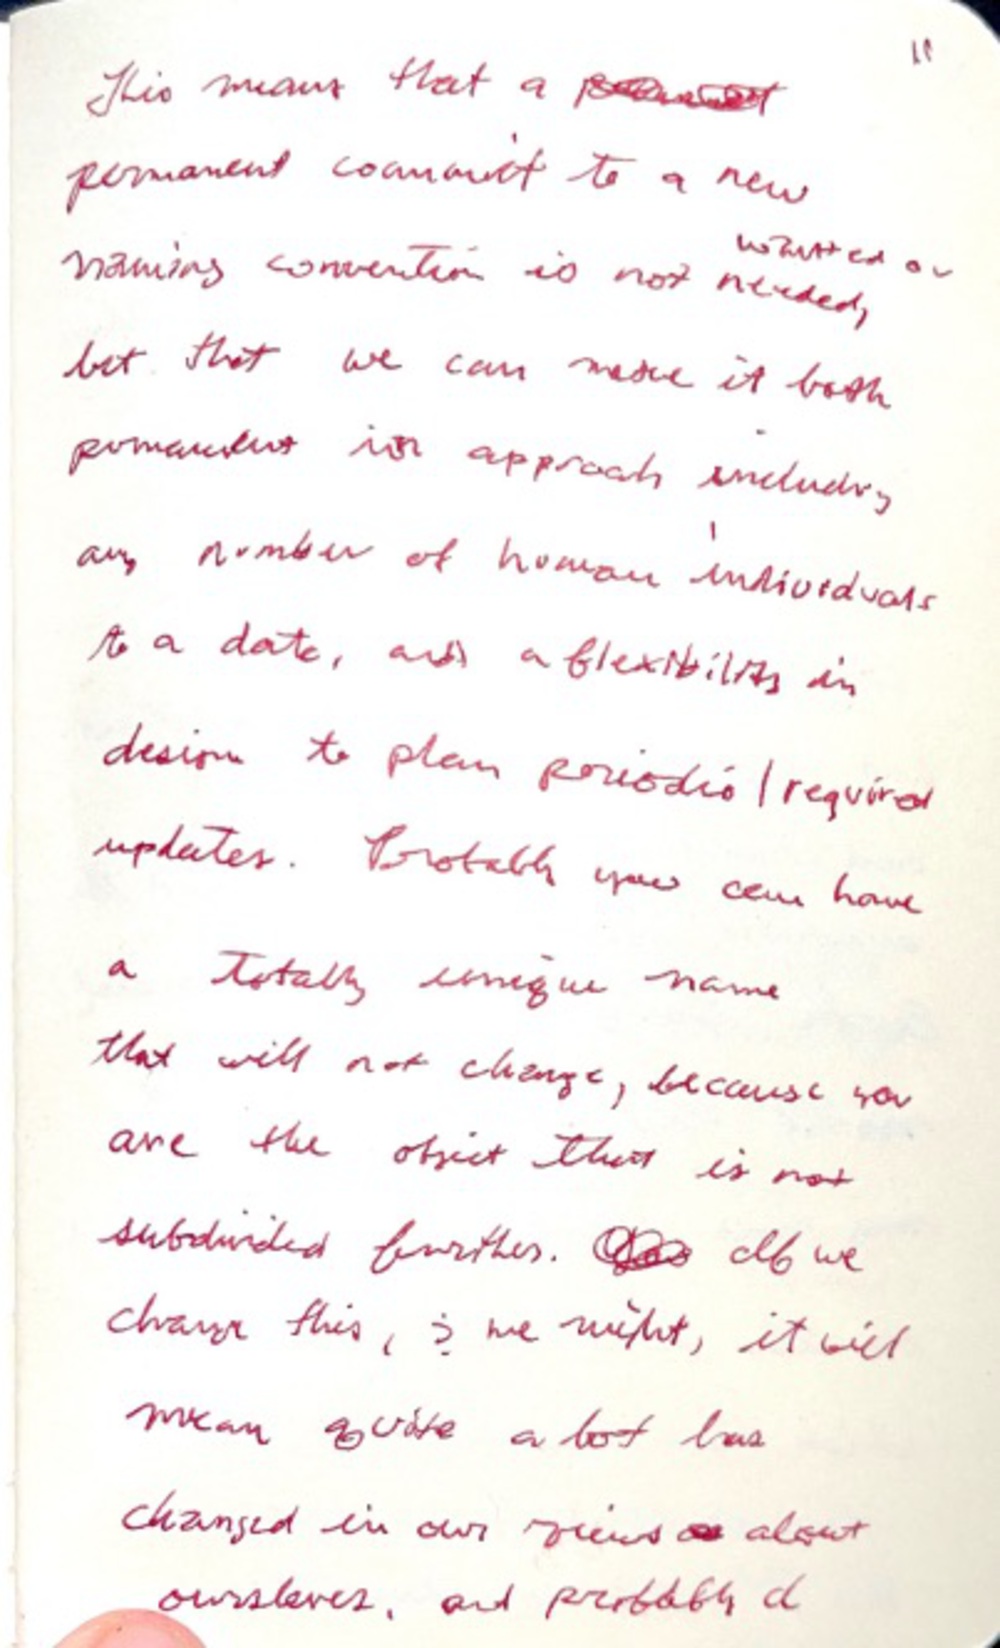 11
This means that a
permanent commit to a new
wanted or
naming convention is not needed,
but that we can make it both
permanent in approach including
any number of human individuals
to a date, and a flexibility in
design to plan periodic/required
updates. Probably you can have
a totally unique name
that will not change, because you
are the object that is not
subdivided further. If we
change this, & we might, it will
mean quite a lot has
changed in our views about
ourslever, and probably d